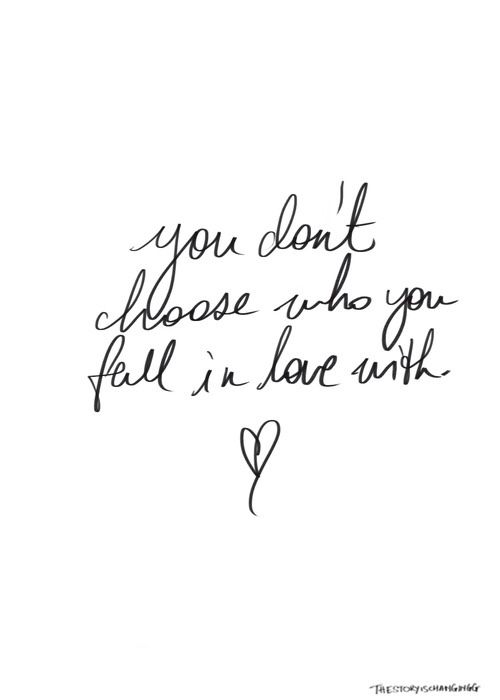 you don't
choose who you
fall in love with.
THESTORYISCHANGINGG